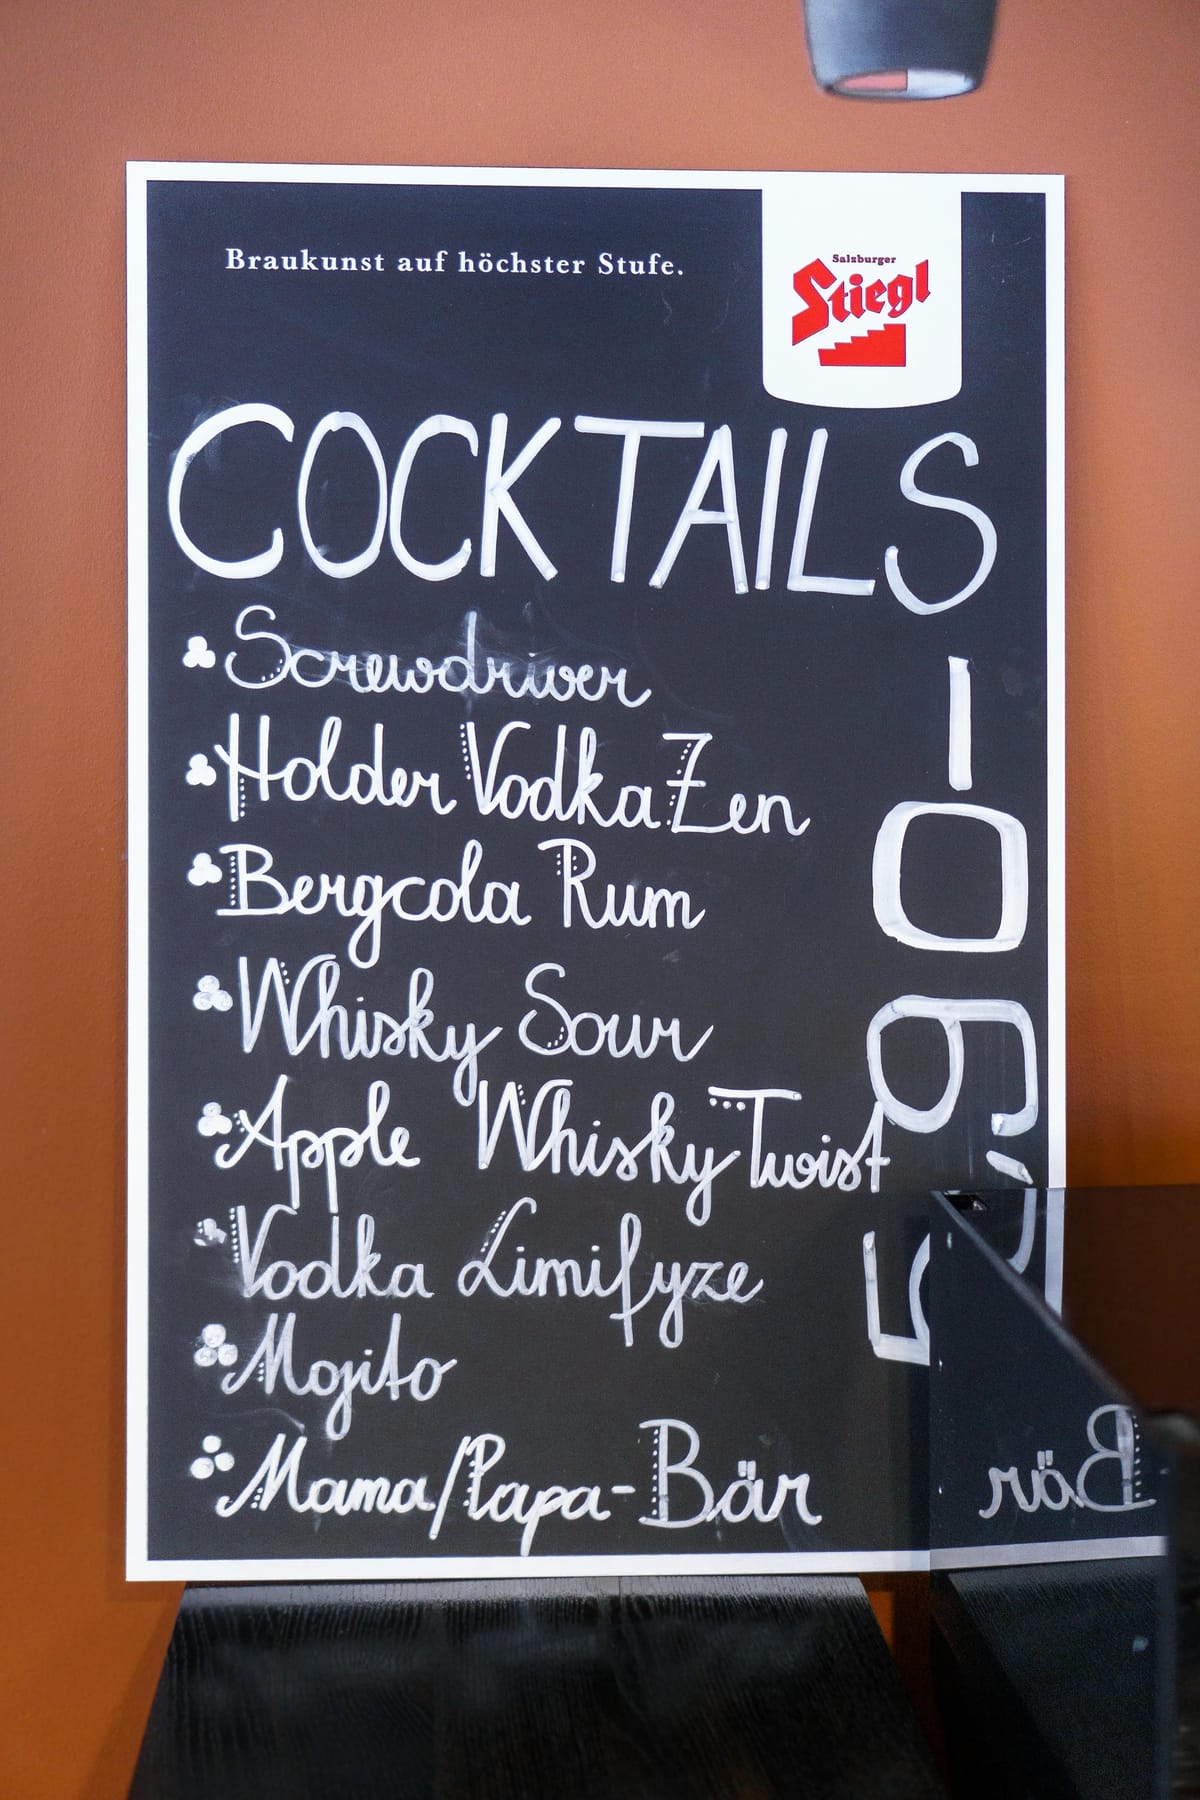 Braukunst auf höchster Stufe.
Salzburger
Stiegl
COCKTAILS
Screwdriver
Holder Vodka Zen
Bergcola Rum
Whisky Sour
Apple Whisky Twist
Vodka Limifyze
Mojito
Mama/Papa-Bär
5,90-